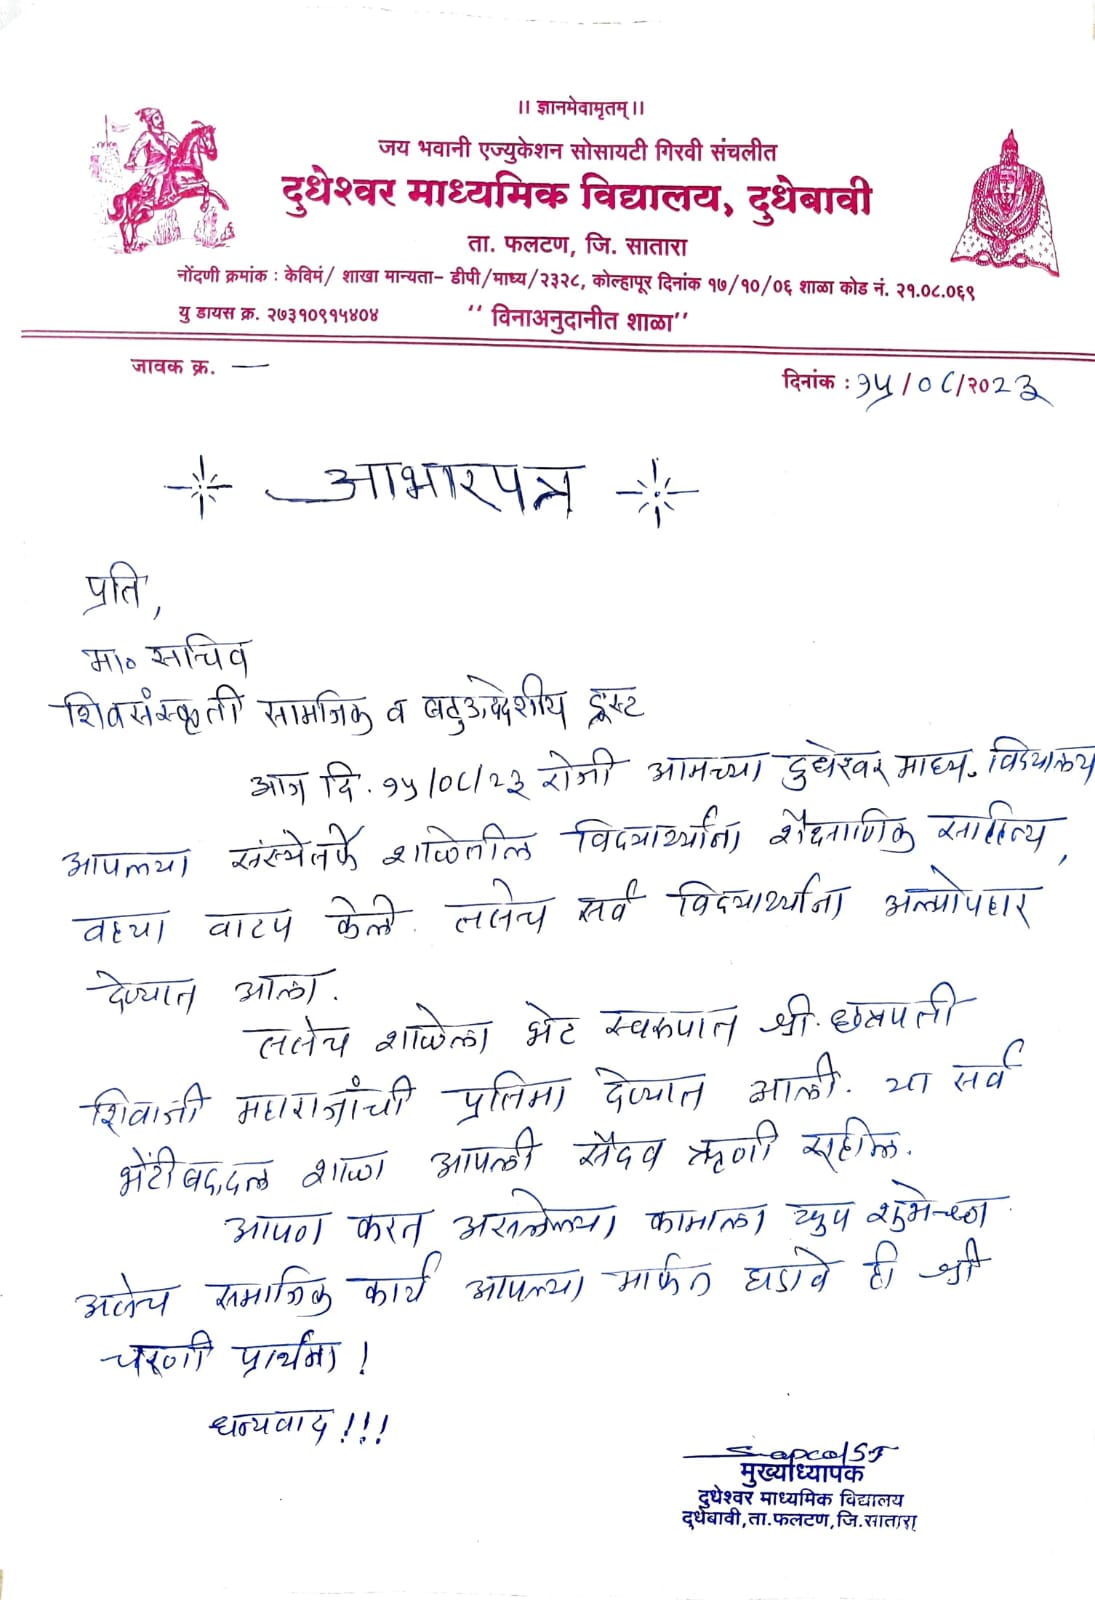 ।। ज्ञानमेवामृतम् ।।
जय भवानी एज्युकेशन सोसायटी गिरवी संचलीत
दुधेश्वर माध्यमिक विद्यालय, दुधेबावी
ता. फलटण, जि. सातारा
नोंदणी क्रमांक : केविमं/ शाखा मान्यता- डीपी/माध्य/२३२८, कोल्हापूर दिनांक १७/१०/०६ शाळा कोड नं. २१.०८.०६९
यु डायस क्र. २७३१०९१५४०४ "विनाअनुदानीत शाळा"
जावक क्र. —
दिनांक : १५/०८/२०२३
आभारपत्र
प्रति,
मा० सचिव
शिवसंस्कृती सामाजिक व बहुउद्देशीय ट्रस्ट
आज दि. १५/०८/२३ रोजी आमच्या दुधेश्वर माध्य. विद्यालय
आपल्या संस्थेतर्फे शाळेतील विद्यार्थ्यांना शैक्षाणिक साहित्य,
वह्या वाटप केले. तसेच सर्व विद्यार्थ्यांना अल्पोपहार
देण्यात आला.
तसेच शाळेला भेट स्वरुपात श्री. छत्रपती
शिवाजी महाराजांची प्रतिमा देण्यात आली. या सर्व
भेटीबद्दल शाळा आपली सैदव ऋणी राहील.
आपण करत असलेल्या कामाला खुप शुभेच्छा
असेच समाजिक कार्य आपल्या मार्फत घडावे ही श्री
चरणी प्रार्थना !
धन्यवाद !!!
मुख्याध्यापक
दुधेश्वर माध्यमिक विद्यालय
दुधेबावी,ता.फलटण,जि.सातारा